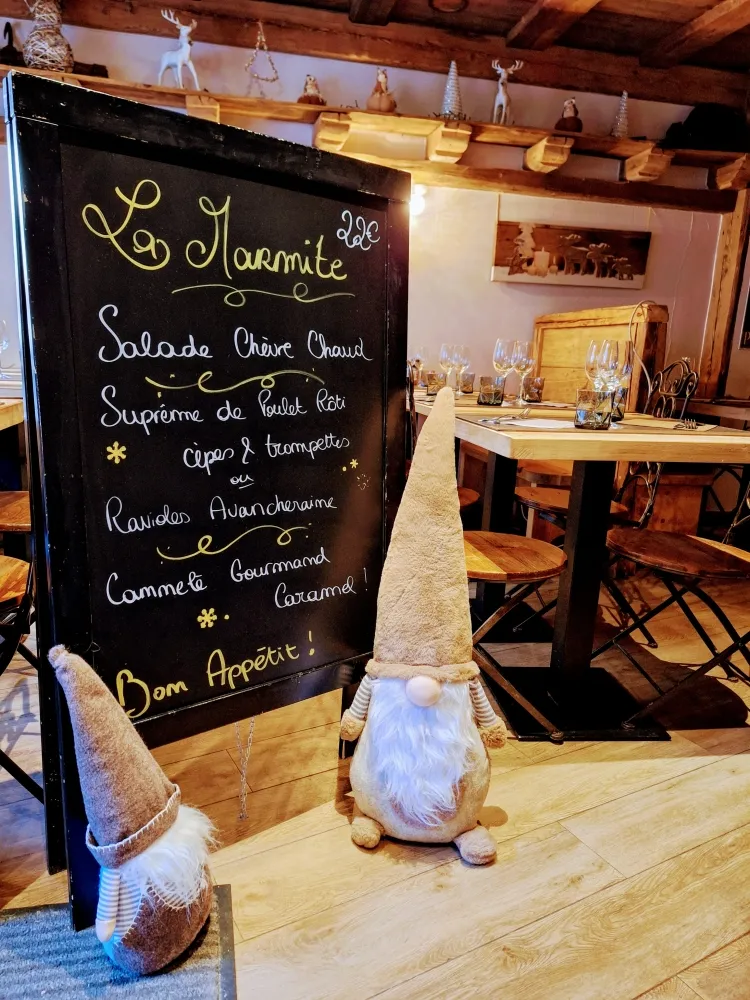 La Marmite
22€
Salade Chèvre Chaud
Suprème de Poulet Rôti
cèpes & trompettes
ou
Ravioles Avancheraine
Cannelé Gourmand
Caramel !
Bon Appétit !